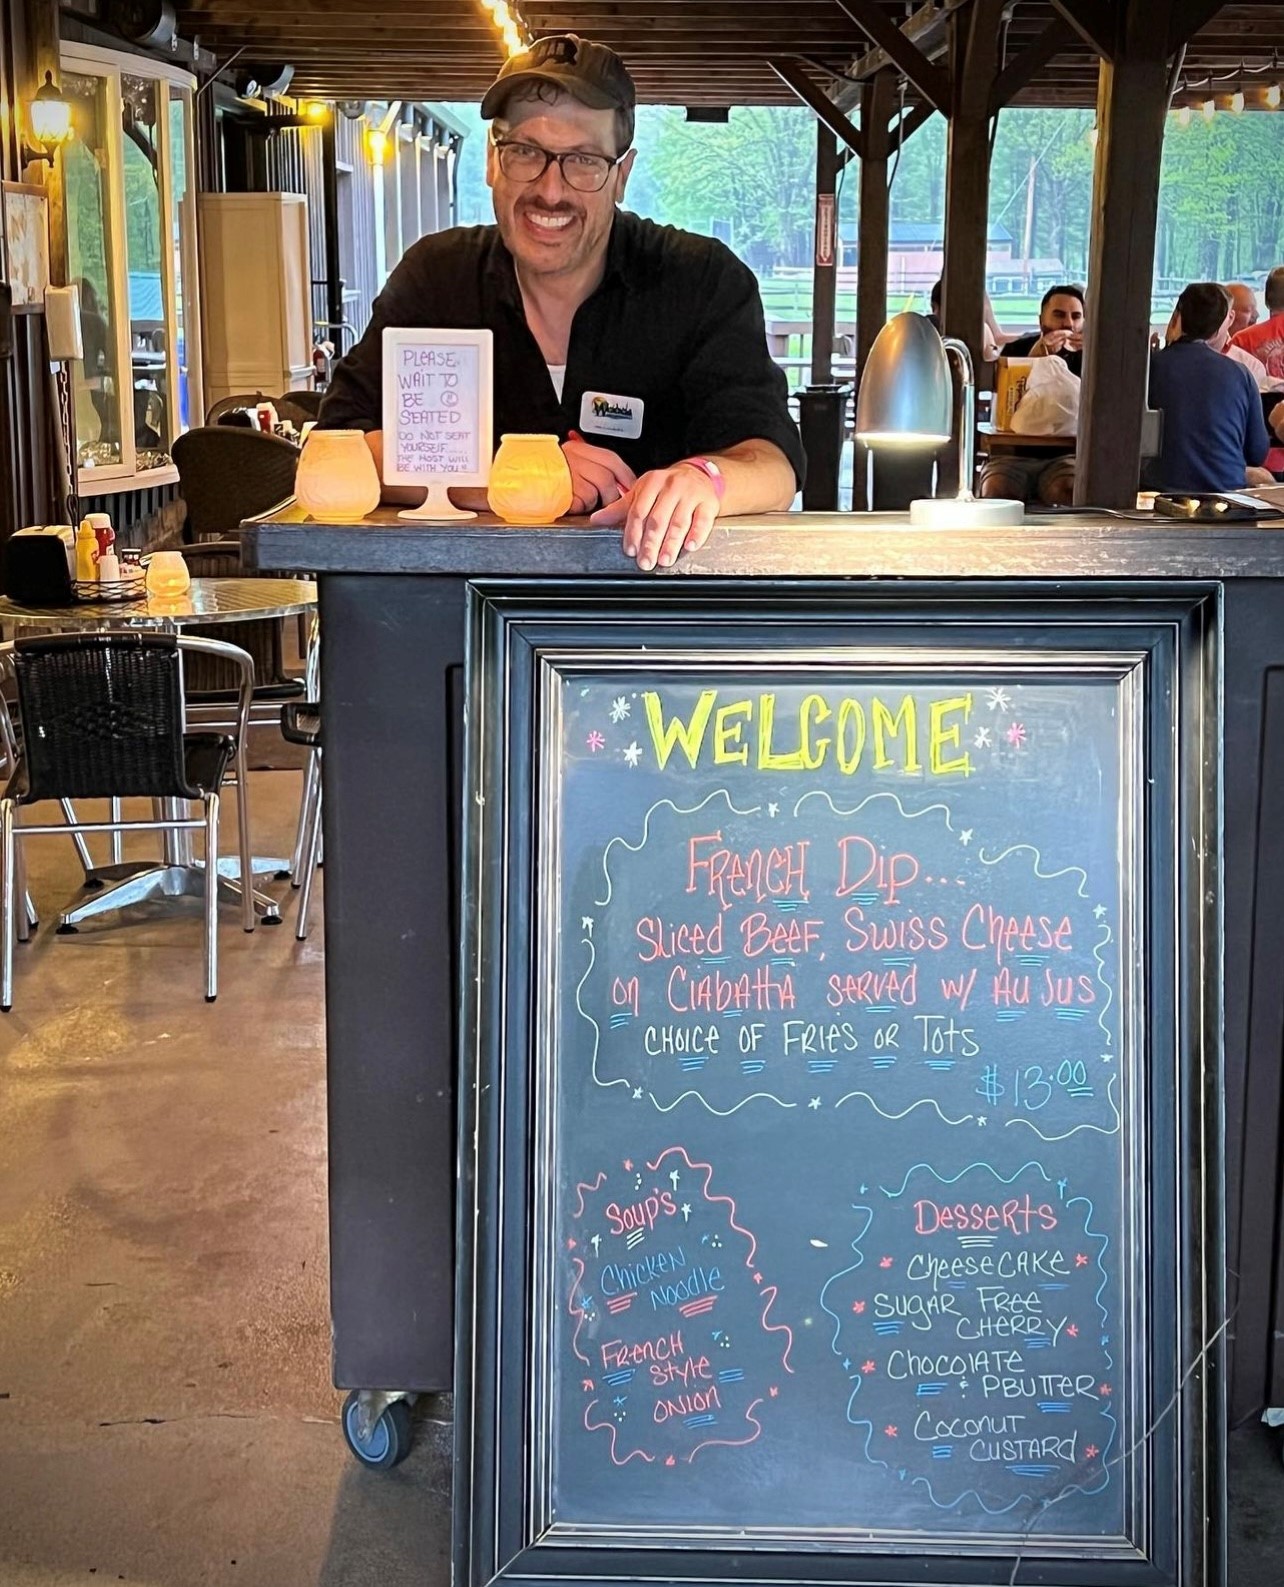 PLEASE
WAIT TO
BE
SEATED
DO NOT SEAT
YOURSELF.....
THE HOST WILL
BE WITH YOU!!
WELCOME
FRENCH DIP...
SLICED BEEF, SWISS CHEESE
ON CIABATTA SERVED W/ AU JUS
CHOICE OF FRIES OR TOTS
$13.00
SOUP'S
CHICKEN
NOODLE
FRENCH
STYLE
ONION
DESSERTS
CHEESECAKE
SUGAR FREE
CHERRY
CHOCOLATE
& PBUTTER
COCONUT
CUSTARD